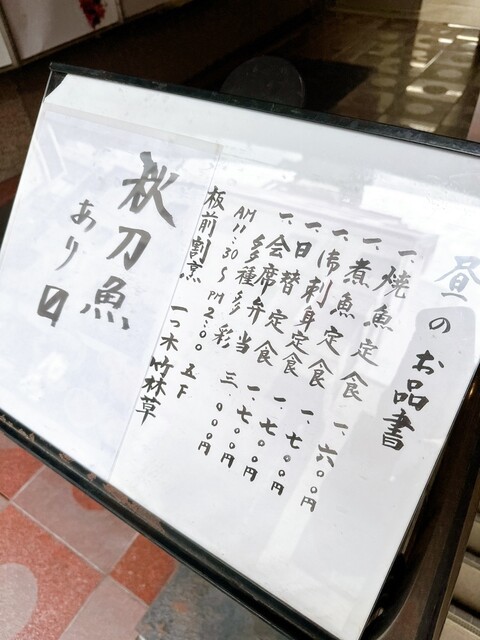 昼のお品書
一、焼魚定食
一、煮魚定食 一、六〇〇円
一、御刺身定食 一、七〇〇円
一、日替定食 一、七〇〇円
一、会席弁当 三、〇〇〇円
多種多彩
AM11:30〜PM2:00 五F
板前割烹 一つ木 竹林草
秋刀魚
あり〼